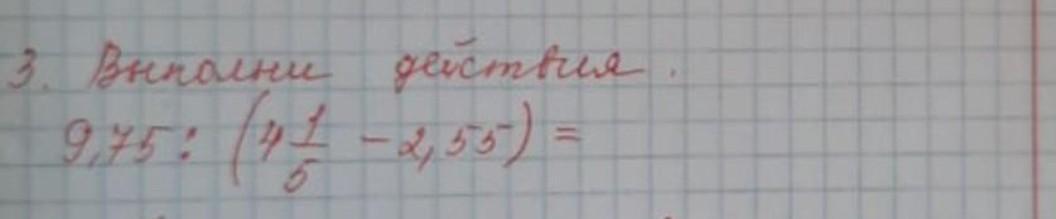 3. Выполни действия.
9,75 : (4 1/5 - 2,55) =